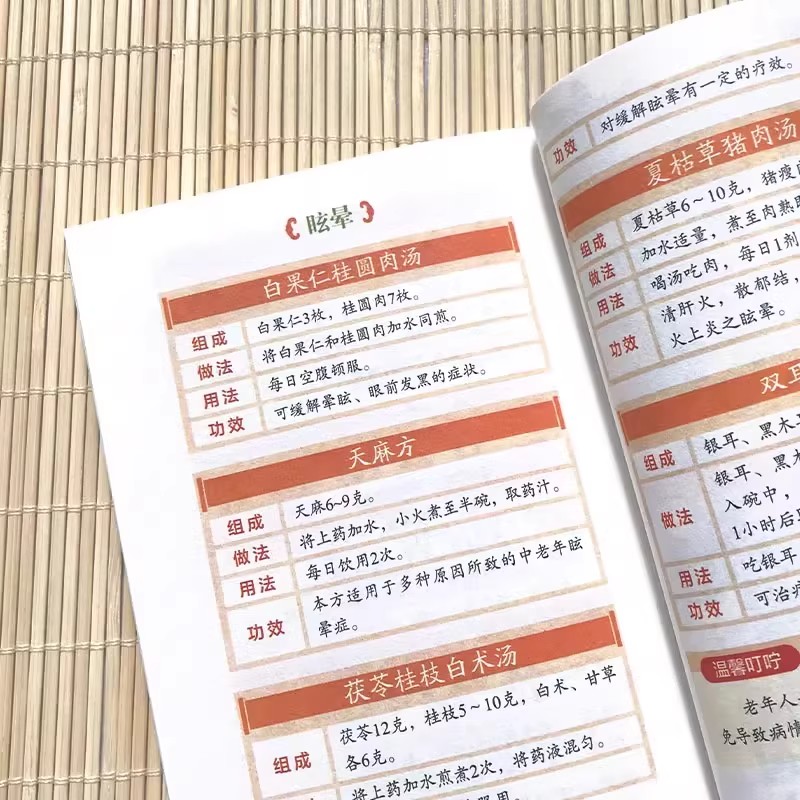 眩晕
白果仁桂圆肉汤
组成 白果仁3枚，桂圆肉7枚。
做法 将白果仁和桂圆肉加水同煎。
用法 每日空腹顿服。
功效 可缓解晕眩、眼前发黑的症状。
天麻方
组成 天麻6~9克。
做法 将上药加水，小火煮至半碗，取药汁。
用法 每日饮用2次。
功效 本方适用于多种原因所致的中老年眩
晕症。
茯苓桂枝白术汤
组成 茯苓12克，桂枝5~10克，白术、甘草
各6克。
将上药加水煎煮2次，将药液混匀。
服用。
功效 对缓解眩晕有一定的疗效。
夏枯草猪肉汤
组成 夏枯草6~10克，猪瘦
做法 加水适量，煮至肉熟
用法 喝汤吃肉，每日1剂
功效 清肝火，散郁结，
火上炎之眩晕。
双耳
组成 银耳、黑木
做法 银耳、黑木
入碗中，
1小时后
用法 吃银耳
功效 可治疗
温馨叮咛
老年人
免导致病情